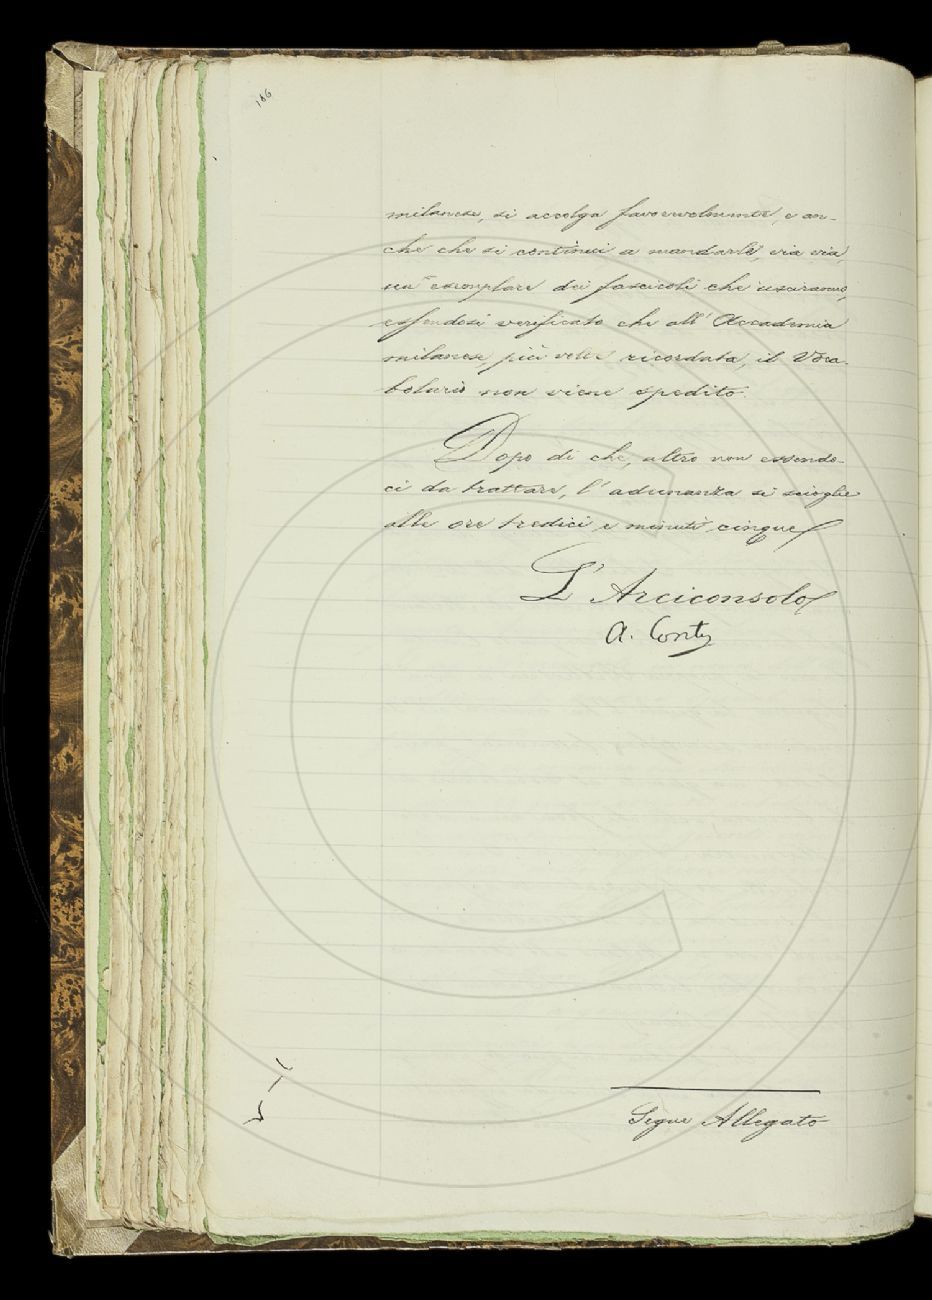 166
milanese, si accolga favorevolmente, e an-
che che si continui a mandarle, via via,
un esemplare dei fascicoli che usciranno,
essendosi verificato che all'Accademia
milanese, più volte ricordata, il Voca-
bolario non viene spedito.
Dopo di che, altro non essendo-
ci da trattare, l'adunanza si scioglie
alle ore tredici e minuti cinque
L'Arciconsolo
A. Conti
Segue Allegato